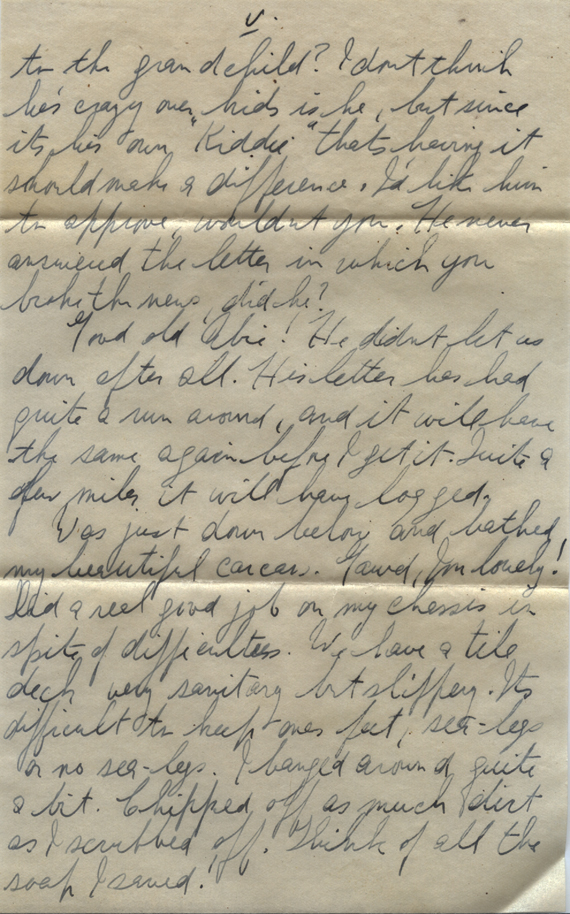 V.
to the grandchild? I dont think
he's crazy over kids is he, but since
its his own "Kiddie" thats having it
should make a difference. I'd like him
to approve, wouldnt you. He never
answered the letter in which you
broke the news, did he?
Good old Abie! He didnt let us
down after all. His letter has had
quite a run around, and it will have
the same again before I get it. Quite a
few miles it will have logged.
Was just down below and bathed
my beautiful carcass. Gawd, Im lovely!
Did a real good job on my chassis in
spite of difficulties. We have a tile
deck very sanitary but slippery. Its
difficult to keep ones feet, sea-legs
or no sea-legs. I banged around quite
a bit. Chipped off as much dirt
as I scrubbed off. Think of all the
soap I saved!